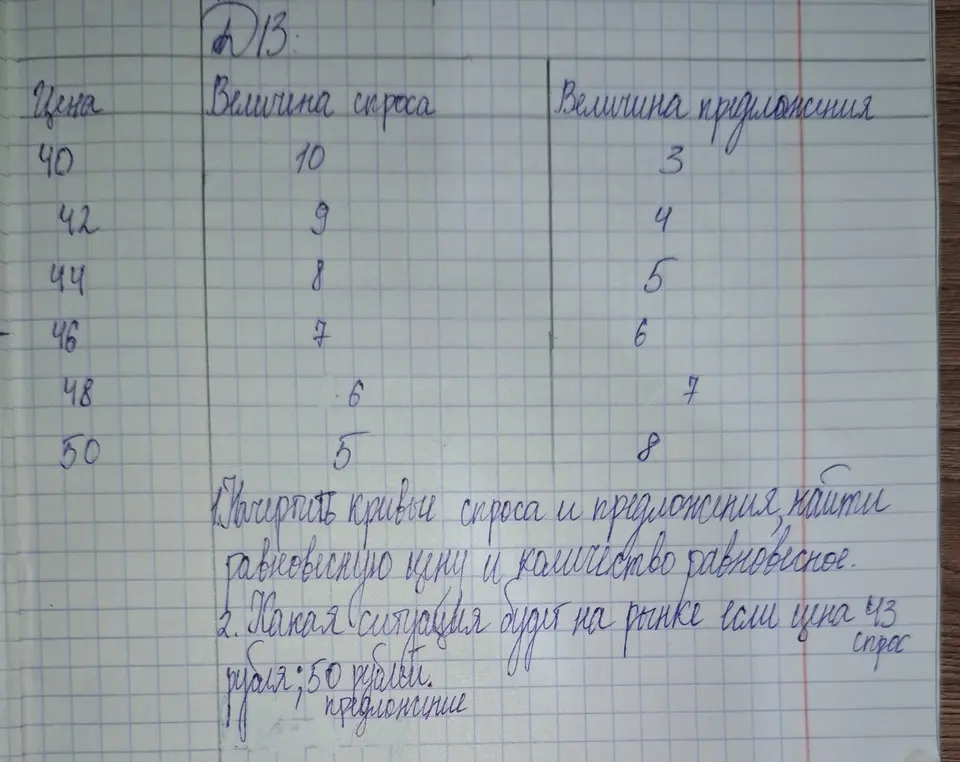 Д/З:
Цена Величина спроса Величина предложения
40 10 3
42 9 4
44 8 5
46 7 6
48 6 7
50 5 8
1. Начертить кривые спроса и предложения, найти
равновесную цену и количество равновесное.
2. Какая ситуация будет на рынке если цена 43
спрос
рубля; 50 рублей.
предложение